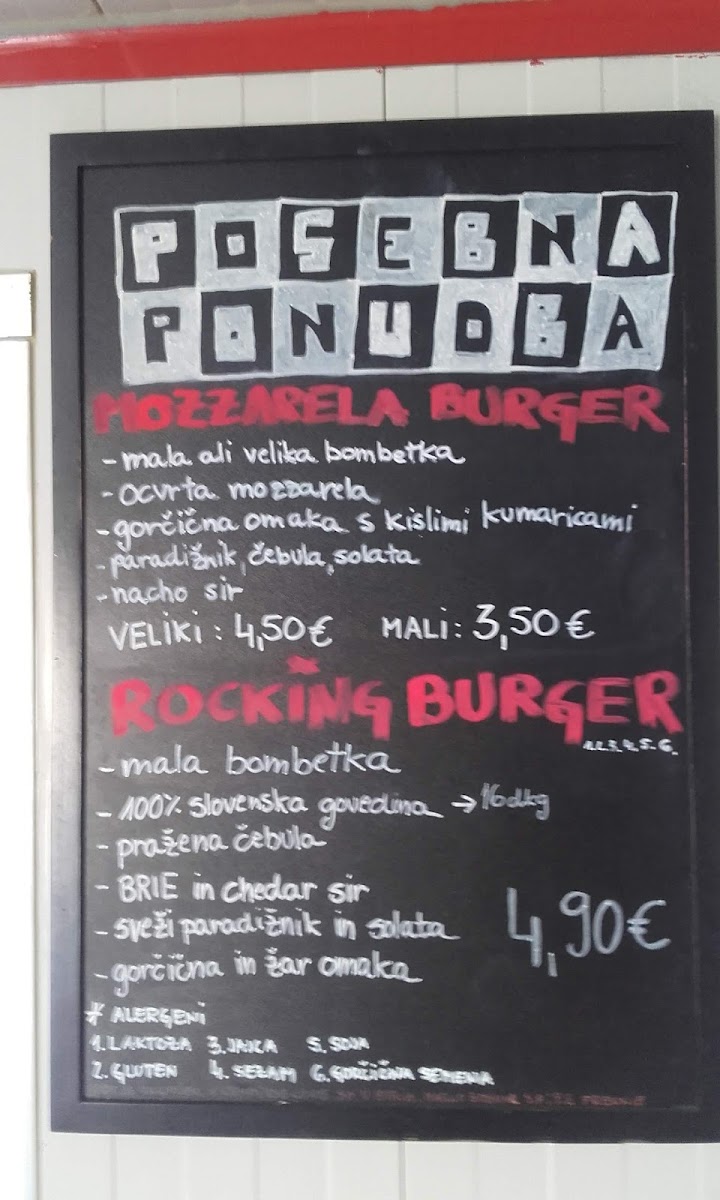 POSEBNA
PONUDBA
MOZZARELA BURGER
- mala ali velika bombetka
- ocvrta mozzarela
- gorčična omaka s kislimi kumaricami
- paradižnik, čebula, solata
- nacho sir
VELIKI : 4,50€ MALI : 3,50€
ROCKING BURGER
- mala bombetka
- 100% slovenska govedina → 16dkg
- pražena čebula
- BRIE in chedar sir
- sveži paradižnik in solata
- gorčična in žar omaka
4,90€
* ALERGENI
1. LAKTOZA 3. JAJCA 5. SOJA
2. GLUTEN 4. SEZAM 6. GORČIČNA SEMENA